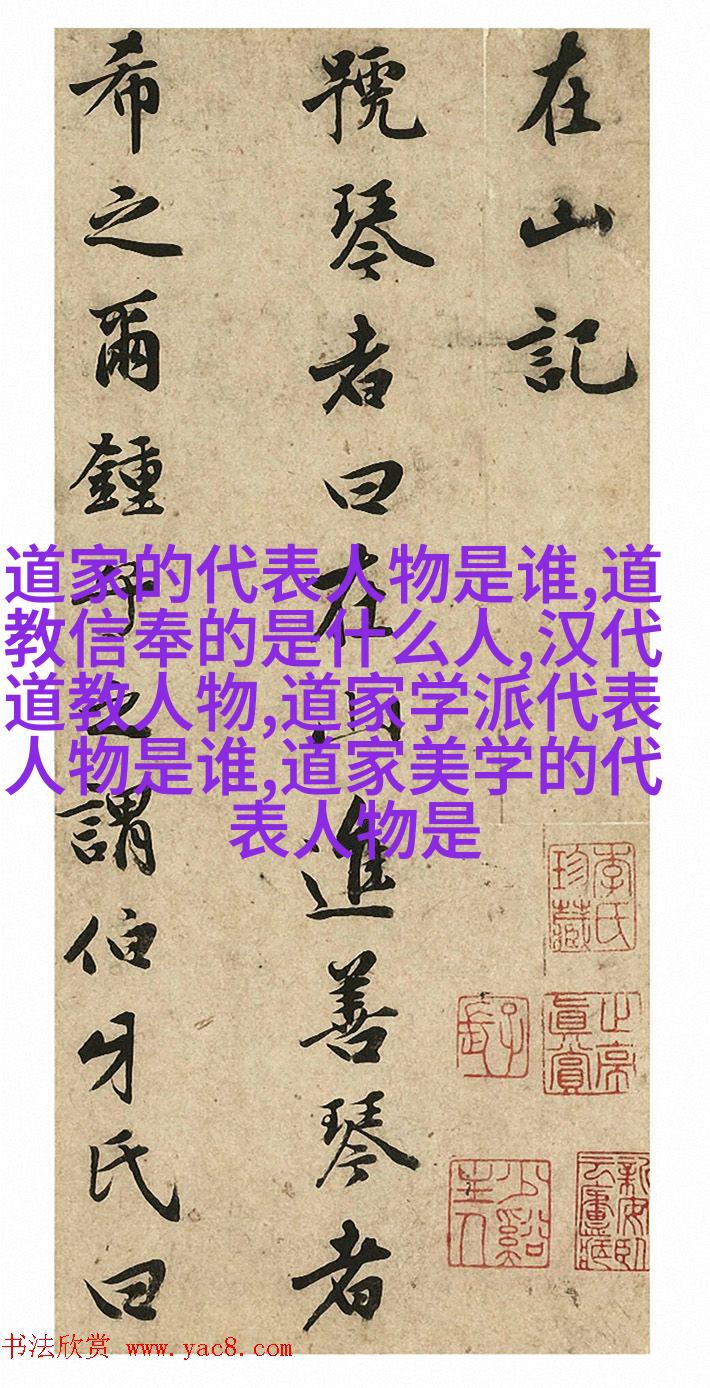 在山記
號琴者曰在山進善琴者
希之爾鍾之謂伯牙氏曰
道家的代表人物是谁,道
教信奉的是什么人,汉代
道教人物,道家学派代表
人物是谁,道家美学的代
表人物是
氏
珍藏
真賞
少谿
主人
书法欣赏 www.yac8.com